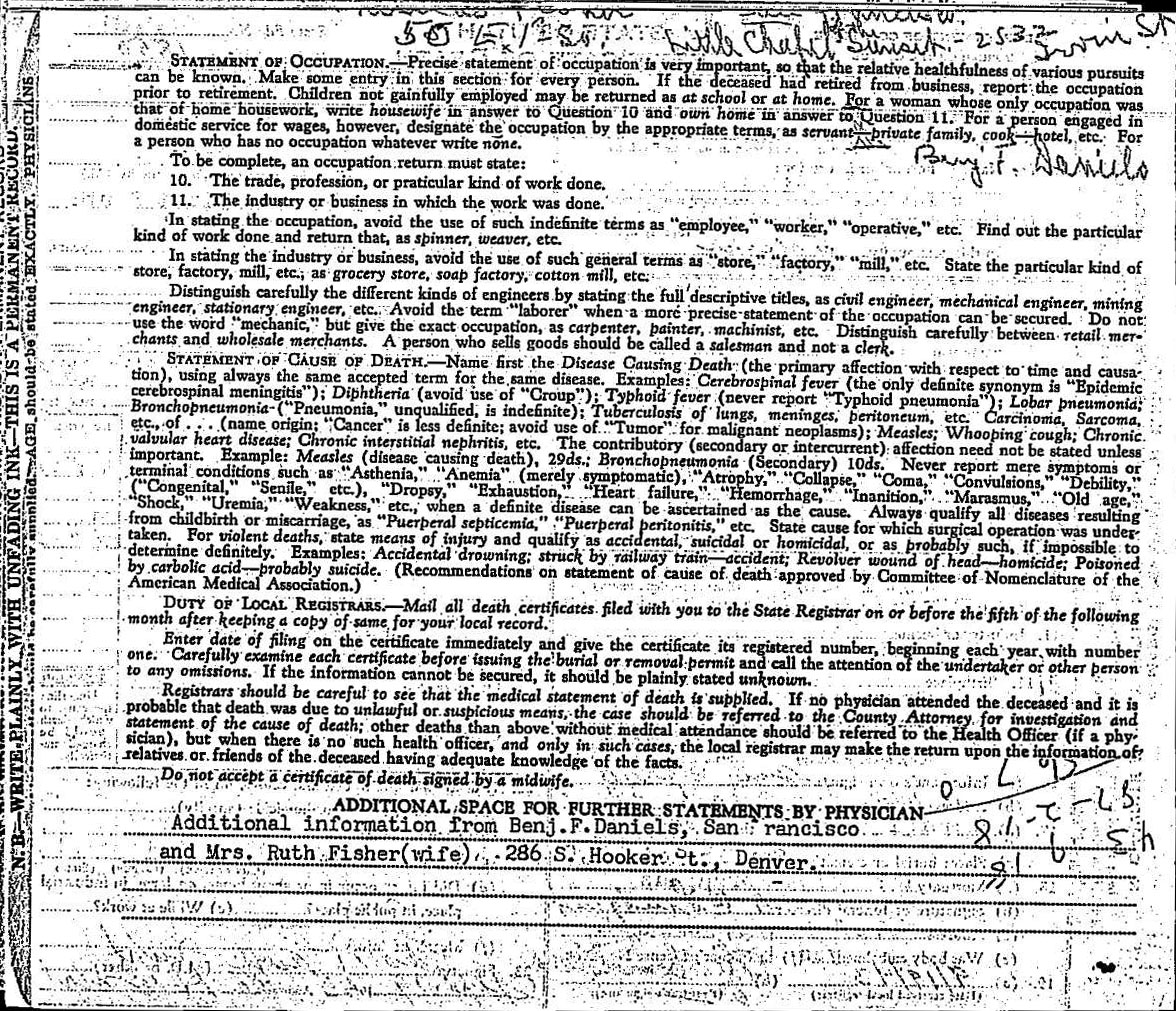 50
Little Chapel Sunset - 2532
STATEMENT OF OCCUPATION.—Precise statement of occupation is very important, so that the relative healthfulness of various pursuits
can be known. Make some entry in this section for every person. If the deceased had retired from business, report the occupation
prior to retirement. Children not gainfully employed may be returned as at school or at home. For a woman whose only occupation was
that of home housework, write housewife in answer to Question 10 and own home in answer to Question 11. For a person engaged in
domestic service for wages, however, designate the occupation by the appropriate terms, as servant—private family, cook—hotel, etc. For
a person who has no occupation whatever write none.
Benj. F. Daniels
To be complete, an occupation return must state:
10. The trade, profession, or praticular kind of work done.
11. The industry or business in which the work was done.
In stating the occupation, avoid the use of such indefinite terms as "employee," "worker," "operative," etc. Find out the particular
kind of work done and return that, as spinner, weaver, etc.
In stating the industry or business, avoid the use of such general terms as "store," "factory," "mill," etc. State the particular kind of
store, factory, mill, etc., as grocery store, soap factory, cotton mill, etc.
Distinguish carefully the different kinds of engineers by stating the full descriptive titles, as civil engineer, mechanical engineer, mining
engineer, stationary engineer, etc. Avoid the term "laborer" when a more precise statement of the occupation can be secured. Do not
use the word "mechanic," but give the exact occupation, as carpenter, painter, machinist, etc. Distinguish carefully between retail mer-
chants and wholesale merchants. A person who sells goods should be called a salesman and not a clerk.
STATEMENT OF CAUSE OF DEATH.—Name first the Disease Causing Death (the primary affection with respect to time and causa-
tion), using always the same accepted term for the same disease. Examples: Cerebrospinal fever (the only definite synonym is "Epidemic
cerebrospinal meningitis"); Diphtheria (avoid use of "Croup"); Typhoid fever (never report "Typhoid pneumonia"); Lobar pneumonia;
Bronchopneumonia ("Pneumonia," unqualified, is indefinite); Tuberculosis of lungs, meninges, peritoneum, etc. Carcinoma, Sarcoma,
etc., of . . . (name origin; "Cancer" is less definite; avoid use of "Tumor" for malignant neoplasms); Measles; Whooping cough; Chronic
valvular heart disease; Chronic interstitial nephritis, etc. The contributory (secondary or intercurrent) affection need not be stated unless
important. Example: Measles (disease causing death), 29ds.; Bronchopneumonia (Secondary) 10ds. Never report mere symptoms or
terminal conditions such as "Asthenia," "Anemia" (merely symptomatic), "Atrophy," "Collapse," "Coma," "Convulsions," "Debility,"
("Congenital," "Senile," etc.), "Dropsy," "Exhaustion," "Heart failure," "Hemorrhage," "Inanition," "Marasmus," "Old age,"
"Shock," "Uremia," "Weakness," etc., when a definite disease can be ascertained as the cause. Always qualify all diseases resulting
from childbirth or miscarriage, as "Puerperal septicemia," "Puerperal peritonitis," etc. State cause for which surgical operation was under-
taken. For violent deaths, state means of injury and qualify as accidental, suicidal or homicidal, or as probably such, if impossible to
determine definitely. Examples: Accidental drowning; struck by railway train—accident; Revolver wound of head—homicide; Poisoned
by carbolic acid—probably suicide. (Recommendations on statement of cause of death approved by Committee of Nomenclature of the
American Medical Association.)
DUTY OF LOCAL REGISTRARS.—Mail all death certificates filed with you to the State Registrar on or before the fifth of the following
month after keeping a copy of same for your local record.
Enter date of filing on the certificate immediately and give the certificate its registered number, beginning each year with number
one. Carefully examine each certificate before issuing the burial or removal permit and call the attention of the undertaker or other person
to any omissions. If the information cannot be secured, it should be plainly stated unknown.
Registrars should be careful to see that the medical statement of death is supplied. If no physician attended the deceased and it is
probable that death was due to unlawful or suspicious means, the case should be referred to the County Attorney for investigation and
statement of the cause of death; other deaths than above without medical attendance should be referred to the Health Officer (if a phy-
sician), but when there is no such health officer, and only in such cases, the local registrar may make the return upon the information of
relatives or friends of the deceased having adequate knowledge of the facts.
Do not accept a certificate of death signed by a midwife.
ADDITIONAL SPACE FOR FURTHER STATEMENTS BY PHYSICIAN
Additional information from Benj.F.Daniels, San Francisco
and Mrs. Ruth Fisher(wife) 286 S. Hooker St., Denver.
N. B.—WRITE PLAINLY WITH UNFADING INK—THIS IS A PERMANENT RECORD.
AGE should be stated EXACTLY. PHYSICIANS